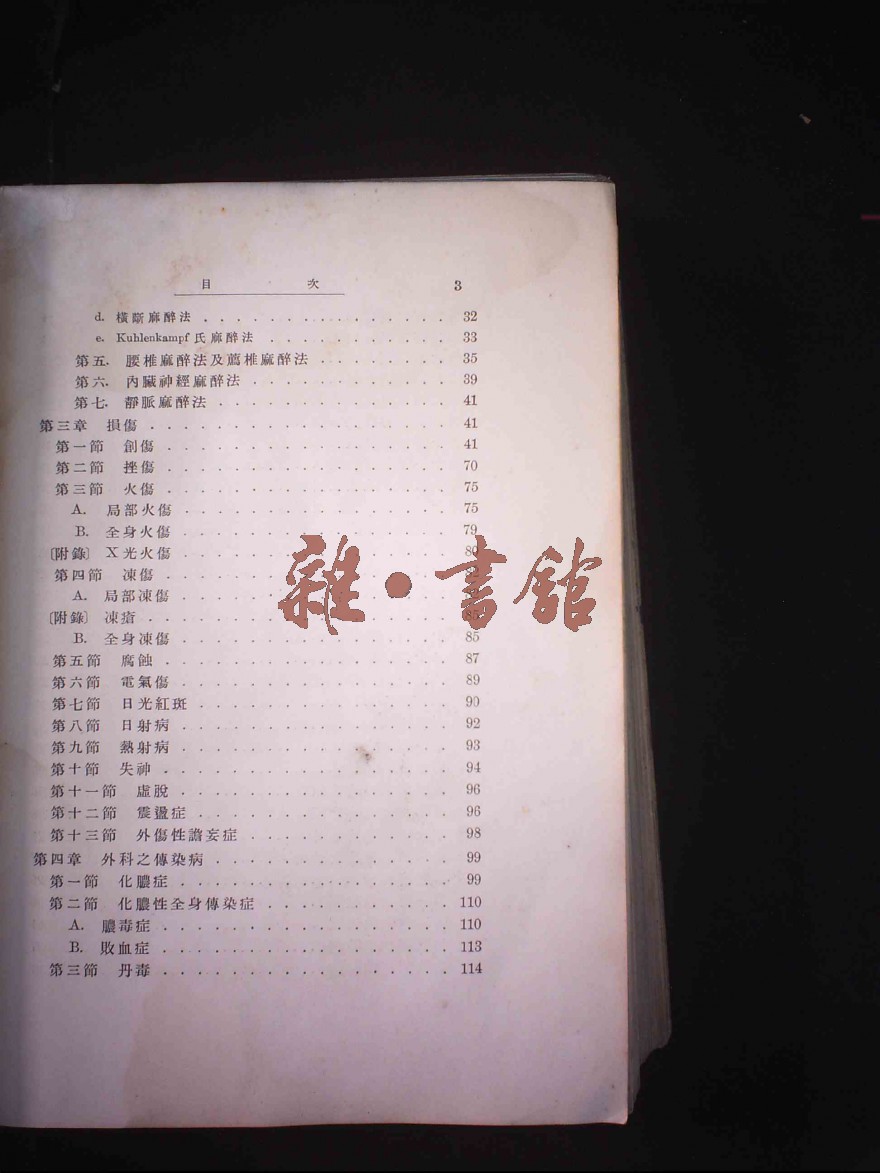 目 次 3
d. 橫斷麻醉法 32
e. Kuhlenkampf 氏麻醉法 33
第五. 腰椎麻醉法及薦椎麻醉法 35
第六. 內臟神經麻醉法 39
第七. 靜脈麻醉法 41
第三章 損傷 41
第一節 創傷 41
第二節 挫傷 70
第三節 火傷 75
A. 局部火傷 75
B. 全身火傷 79
〔附錄〕 X光火傷
第四節 凍傷
A. 局部凍傷
〔附錄〕 凍瘡
B. 全身凍傷 85
第五節 腐蝕 87
第六節 電氣傷 89
第七節 日光紅斑 90
第八節 日射病 92
第九節 熱射病 93
第十節 失神 94
第十一節 虛脫 96
第十二節 震盪症 96
第十三節 外傷性譫妄症 98
第四章 外科之傳染病 99
第一節 化膿症 99
第二節 化膿性全身傳染症 110
A. 膿毒症 110
B. 敗血症 113
第三節 丹毒 114
雜·書館